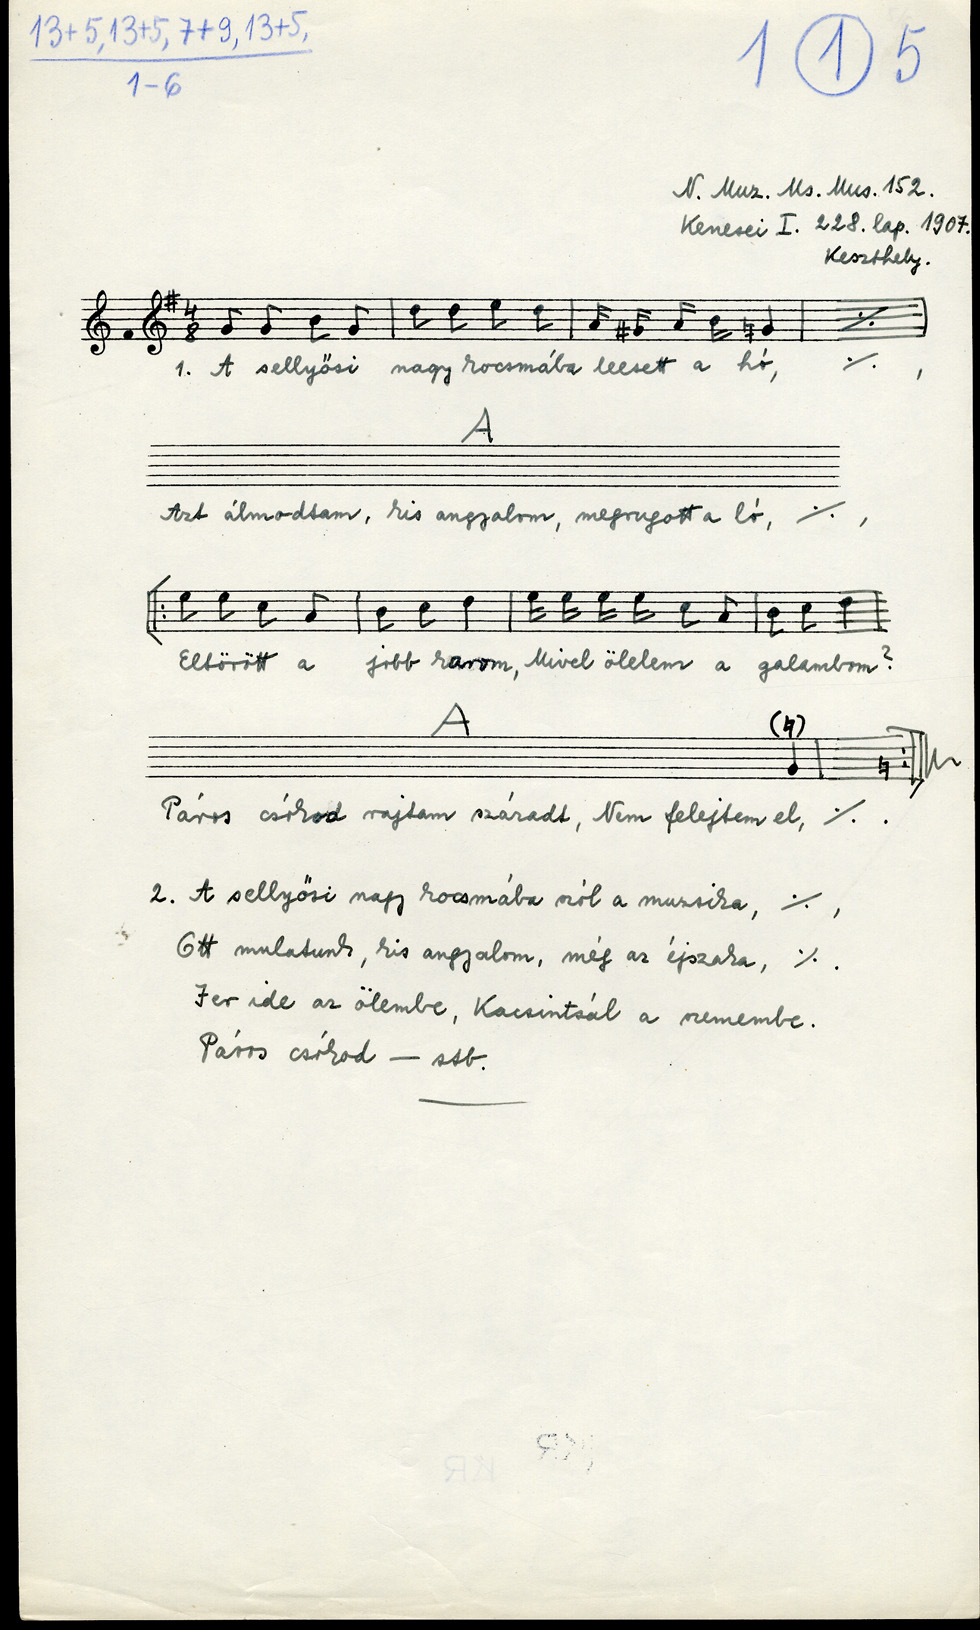 13+5, 13+5, 7+9, 13+5,
1-6
1 1 5
N. Muz. Ms. Mus. 152.
Kenesei I. 228. lap. 1907.
Keszthely.
4
8
1. A sellyősi nagy kocsmába leesett a hó, ·/. ,
A
Azt álmodtam, kis angyalom, megrugott a ló, ·/. ,
Eltörött a jobb karom, Mivel ölelem a galambom?
A
Páros csókod rajtam száradt, Nem felejtem el, ·/. .
2. A sellyősi nagy kocsmába szól a muzsika, ·/. ,
Ott mulatunk, kis angyalom, még az éjszaka, ·/. .
Jer ide az ölembe, Kacsintsál a szemembe.
Páros csókod — stb.
KR
KR